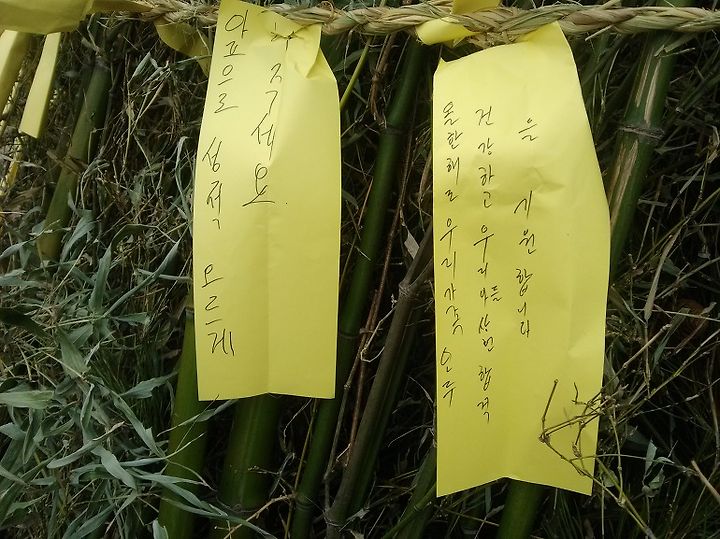 앞으로 성적 오르게
주세요.
올한해도 우리가족 모두
건강하고 우리아들 시험합격
을 기원합니다